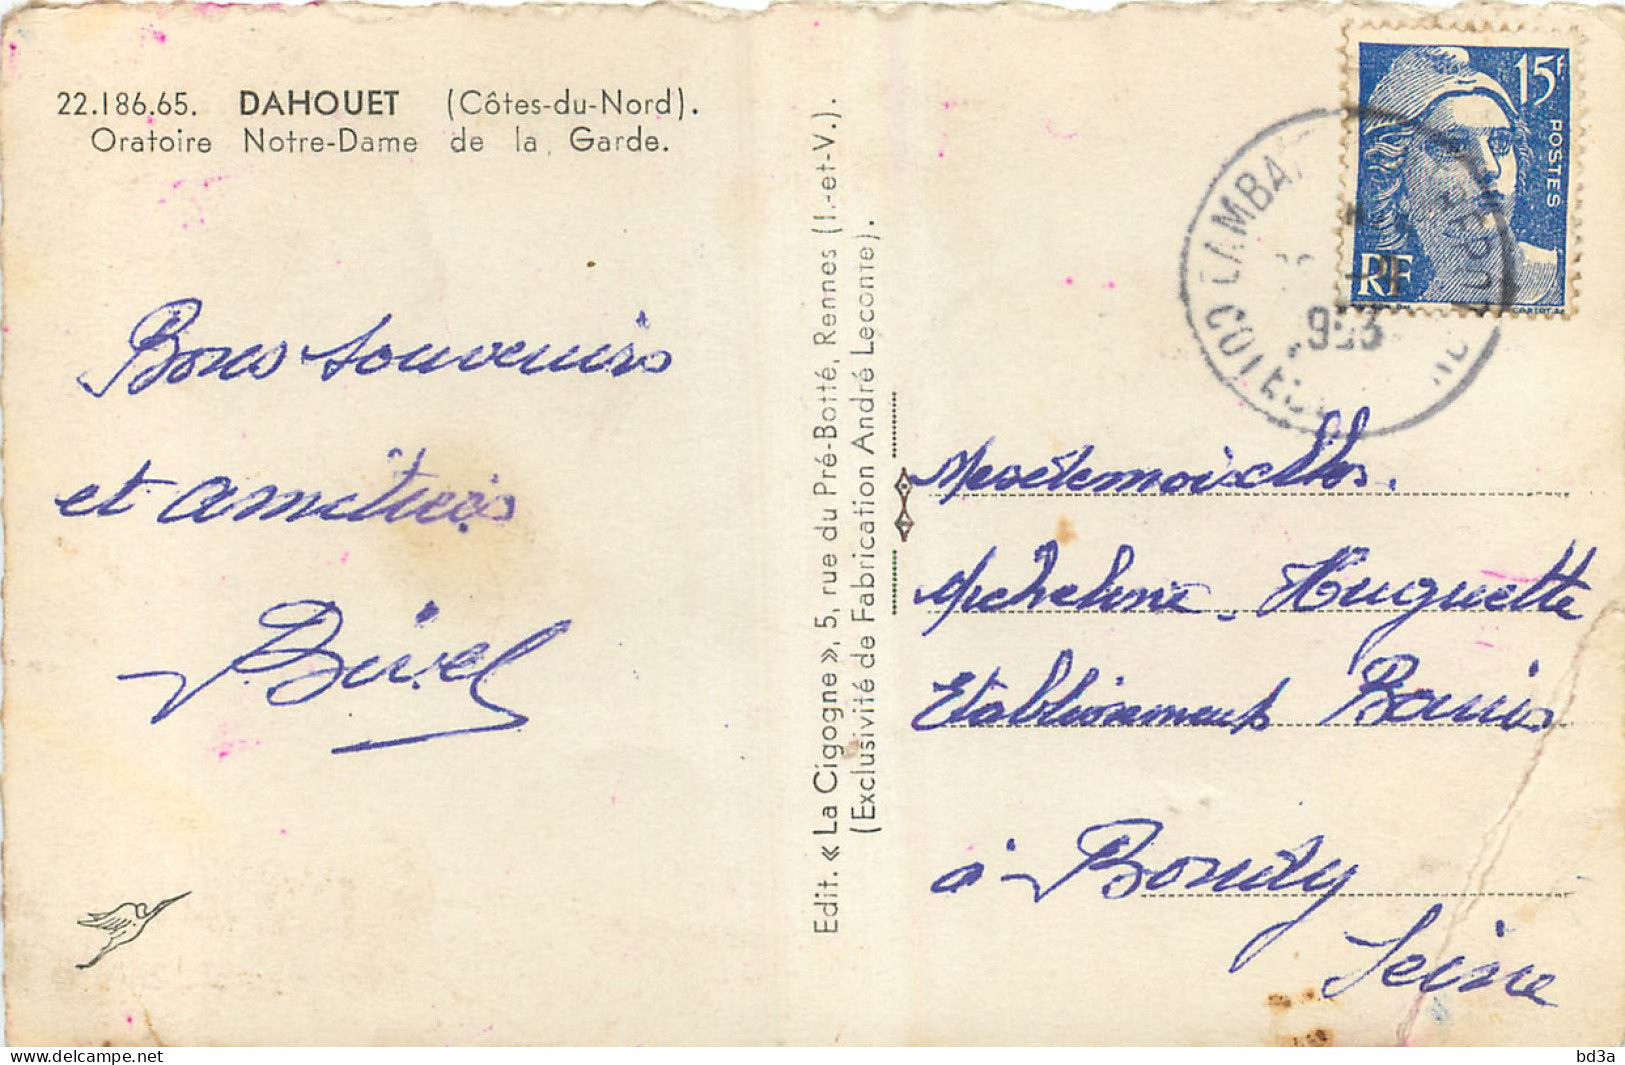 22.186.65. DAHOUET (Côtes-du-Nord).
Oratoire Notre-Dame de la Garde.
Bons souvenirs
et amitiés
Edit. « La Cigogne », 5, rue du Pré-Botté, Rennes (I.-et-V.).
(Exclusivité de Fabrication André Leconte).
15F
POSTES
RF
LAMBA
953
COTES DU
Mesdemoiselles.
Micheline. Huguette
Etablissements
à Bondy
Seine
delcampe.net
bd3a